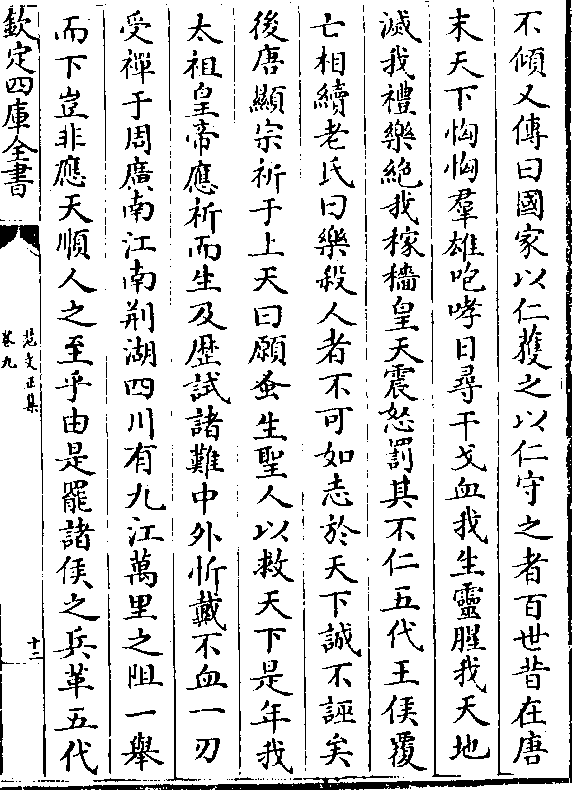 不傾又傳曰國家以仁獲之以仁守之者百世昔在唐
末天下恟恟羣雄咆哮日尋干戈血我生靈腥我天地
滅我禮樂絶我稼穡皇天震怒罰其不仁五代王侯覆
亡相續老氏曰樂殺人者不可如志於天下誠不誣矣
後唐顯宗祈于上天曰願蚤生聖人以救天下是年我
太祖皇帝應祈而生及歴試諸難中外忻戴不血一刃
受禪于周廣南江南荆湖四川有九江萬里之阻一舉
而下豈非應天順人之至乎由是罷諸侯之兵革五代
欽定四庫全書
范文正集
卷九
十二